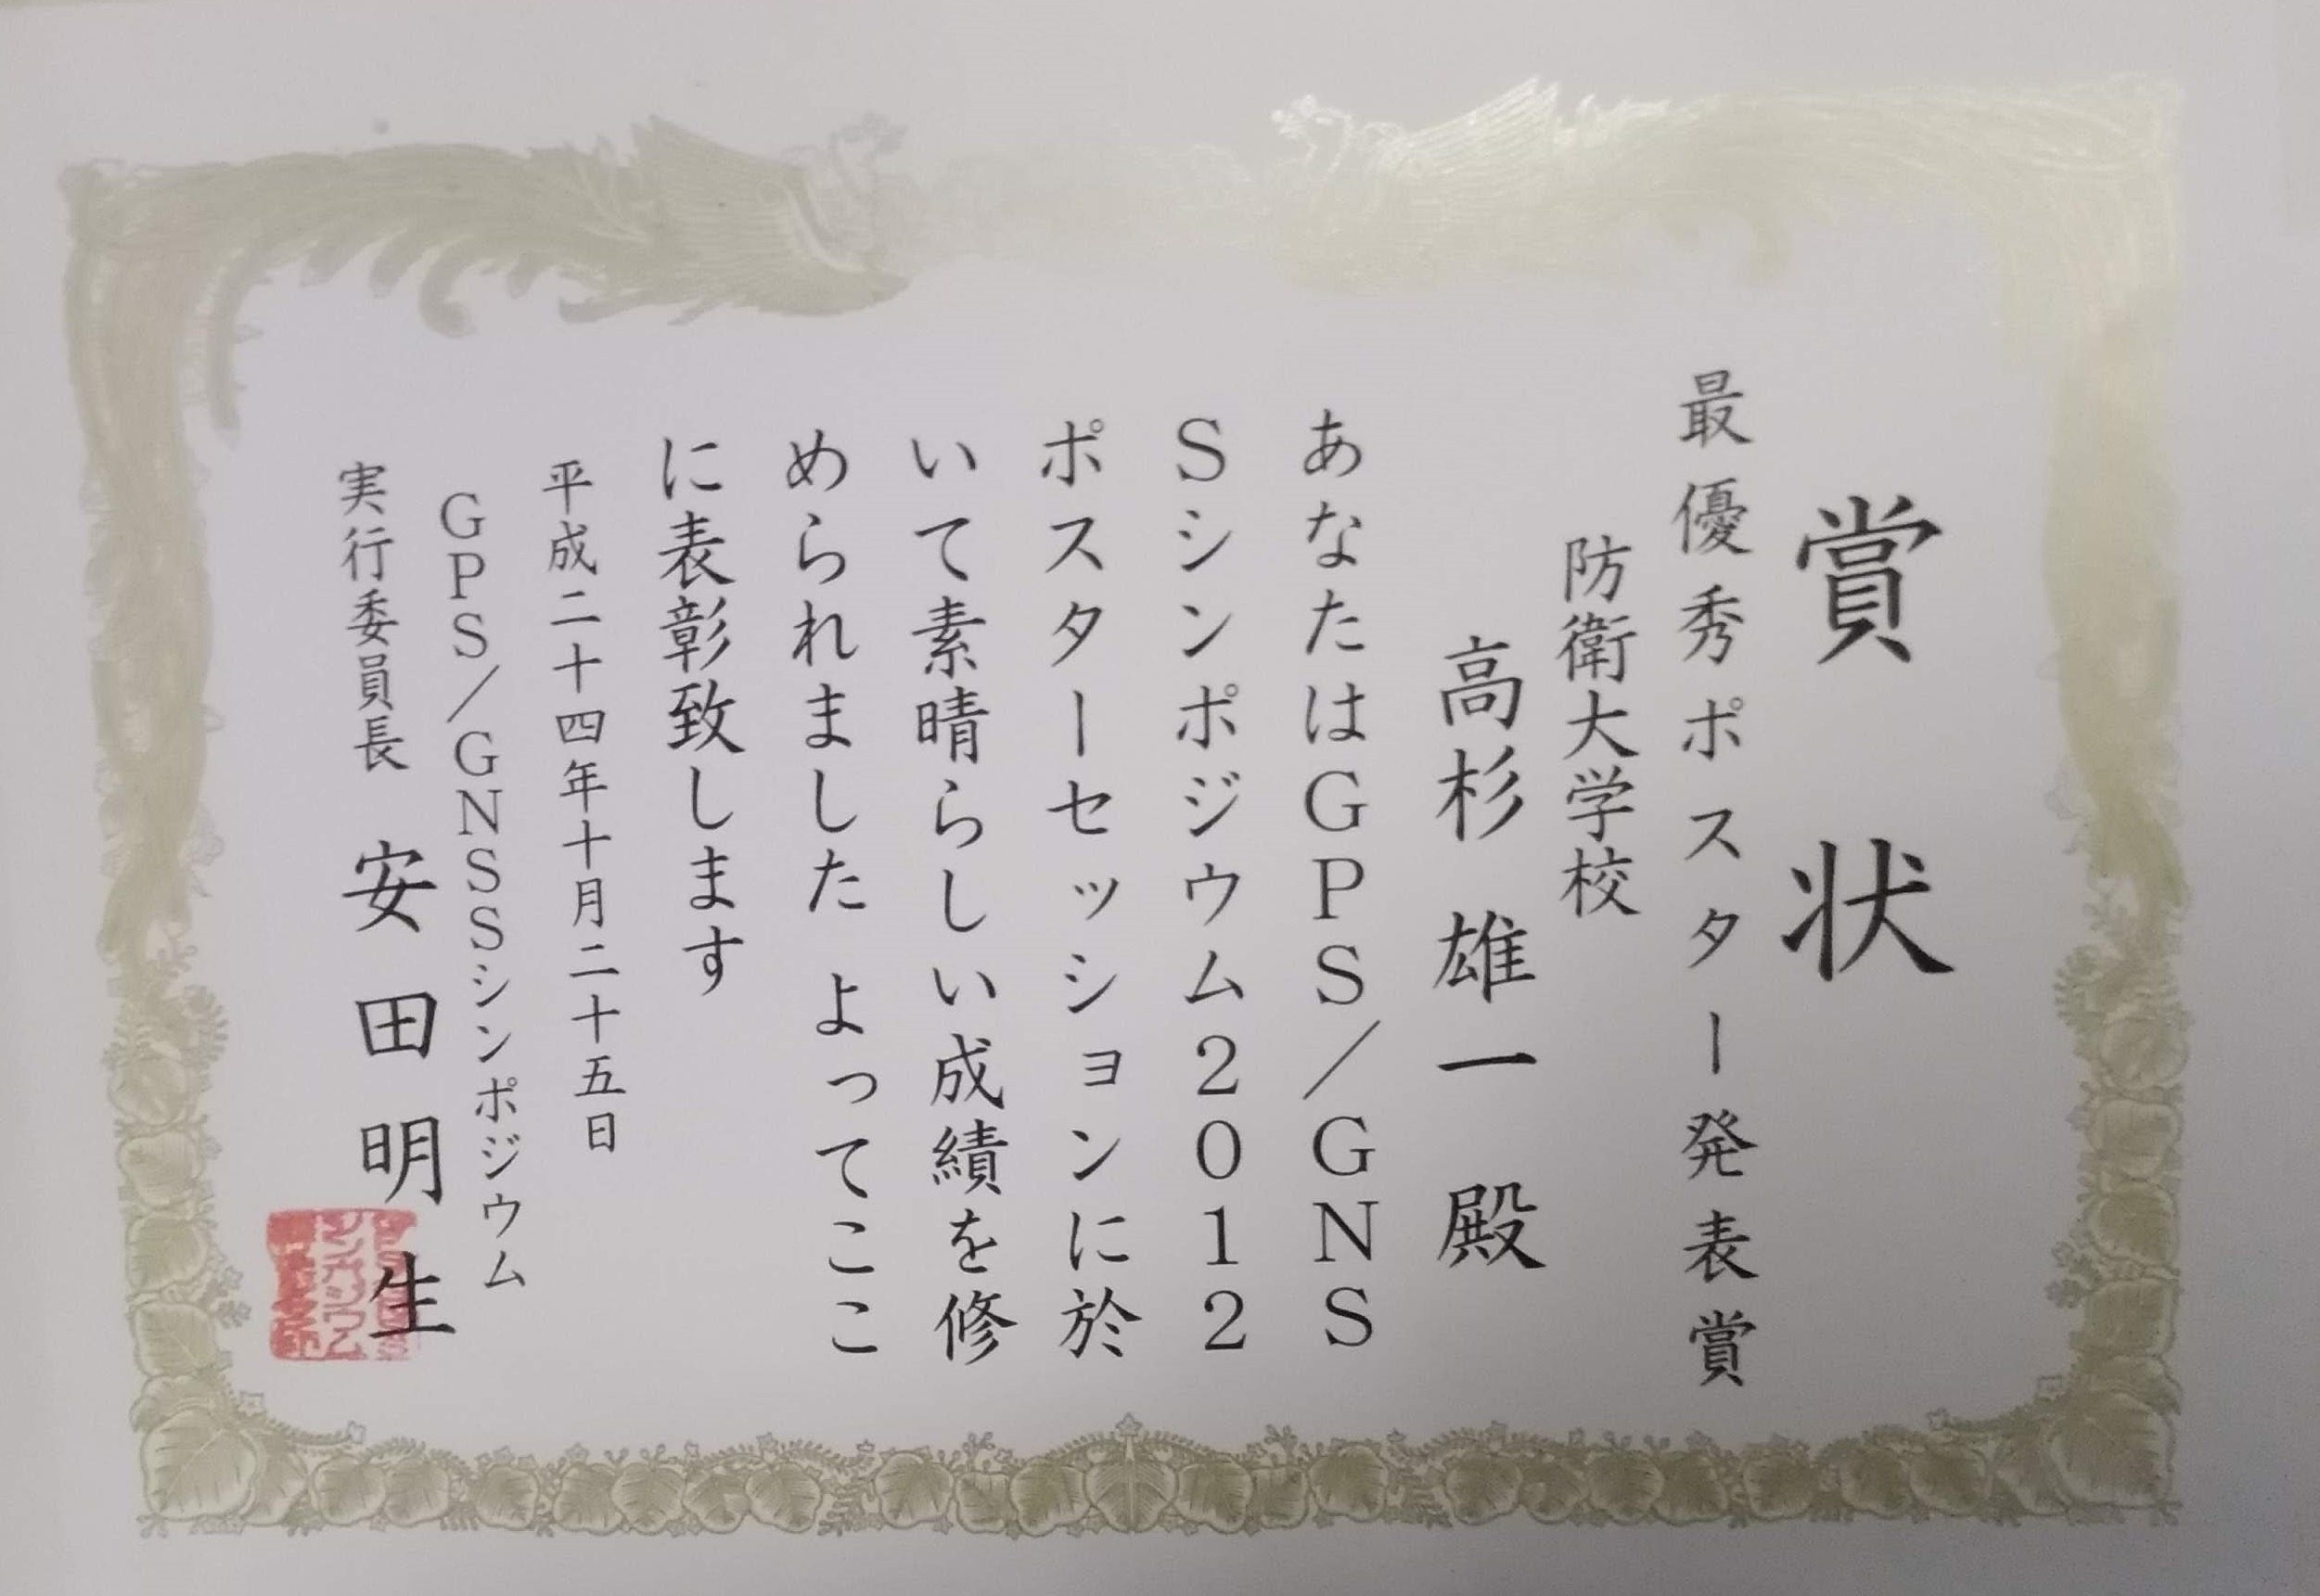 賞状
最優秀ポスター発表賞
防衛大学校
高杉 雄一 殿
あなたはGPS/GNS
Sシンポジウム2012
ポスターセッションに於
いて素晴らしい成績を修
められました よってここ
に表彰致します
平成二十四年十月二十五日
GPS/GNSSシンポジウム
実行委員長 安田明生